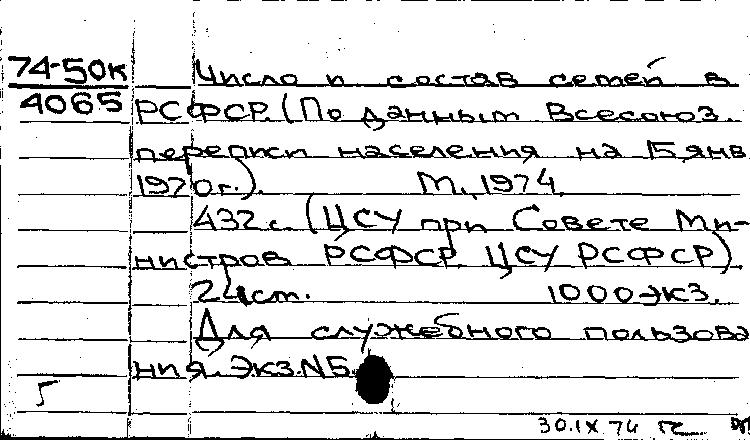 74-50к Число и состав семей в
4065 РСФСР. (По данным Всесоюз.
переписи населения на 15 янв
1970г.). М., 1974.
432 с. (ЦСУ при Совете Ми-
нистров РСФСР. ЦСУ РСФСР).
24 см. 1000 экз.
Для служебного пользова
ния. Экз. N 5.
30.IX.74